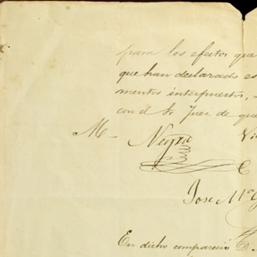 para los efectos que
que han declarado es
mentos interpuestos,
con el Sr Juez de que
M. Negra
C
Jose Ma
En dicho comparecio